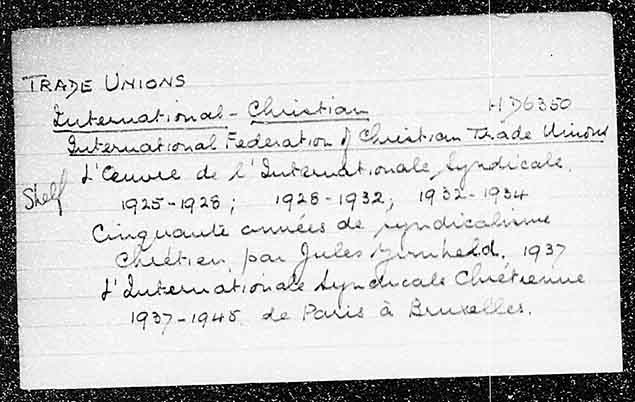 TRADE UNIONS
International - Christian HD6350
International Federation of Christian Trade Unions
L'Œuvre de l'Internationale Syndicale.
Shelf 1925-1928; 1928-1932; 1932-1934
Cinquante années de syndicalisme
Chrétien, par Jules Zirnheld. 1937
L'Internationale Syndicale Chrétienne
1937-1945. de Paris à Bruxelles.